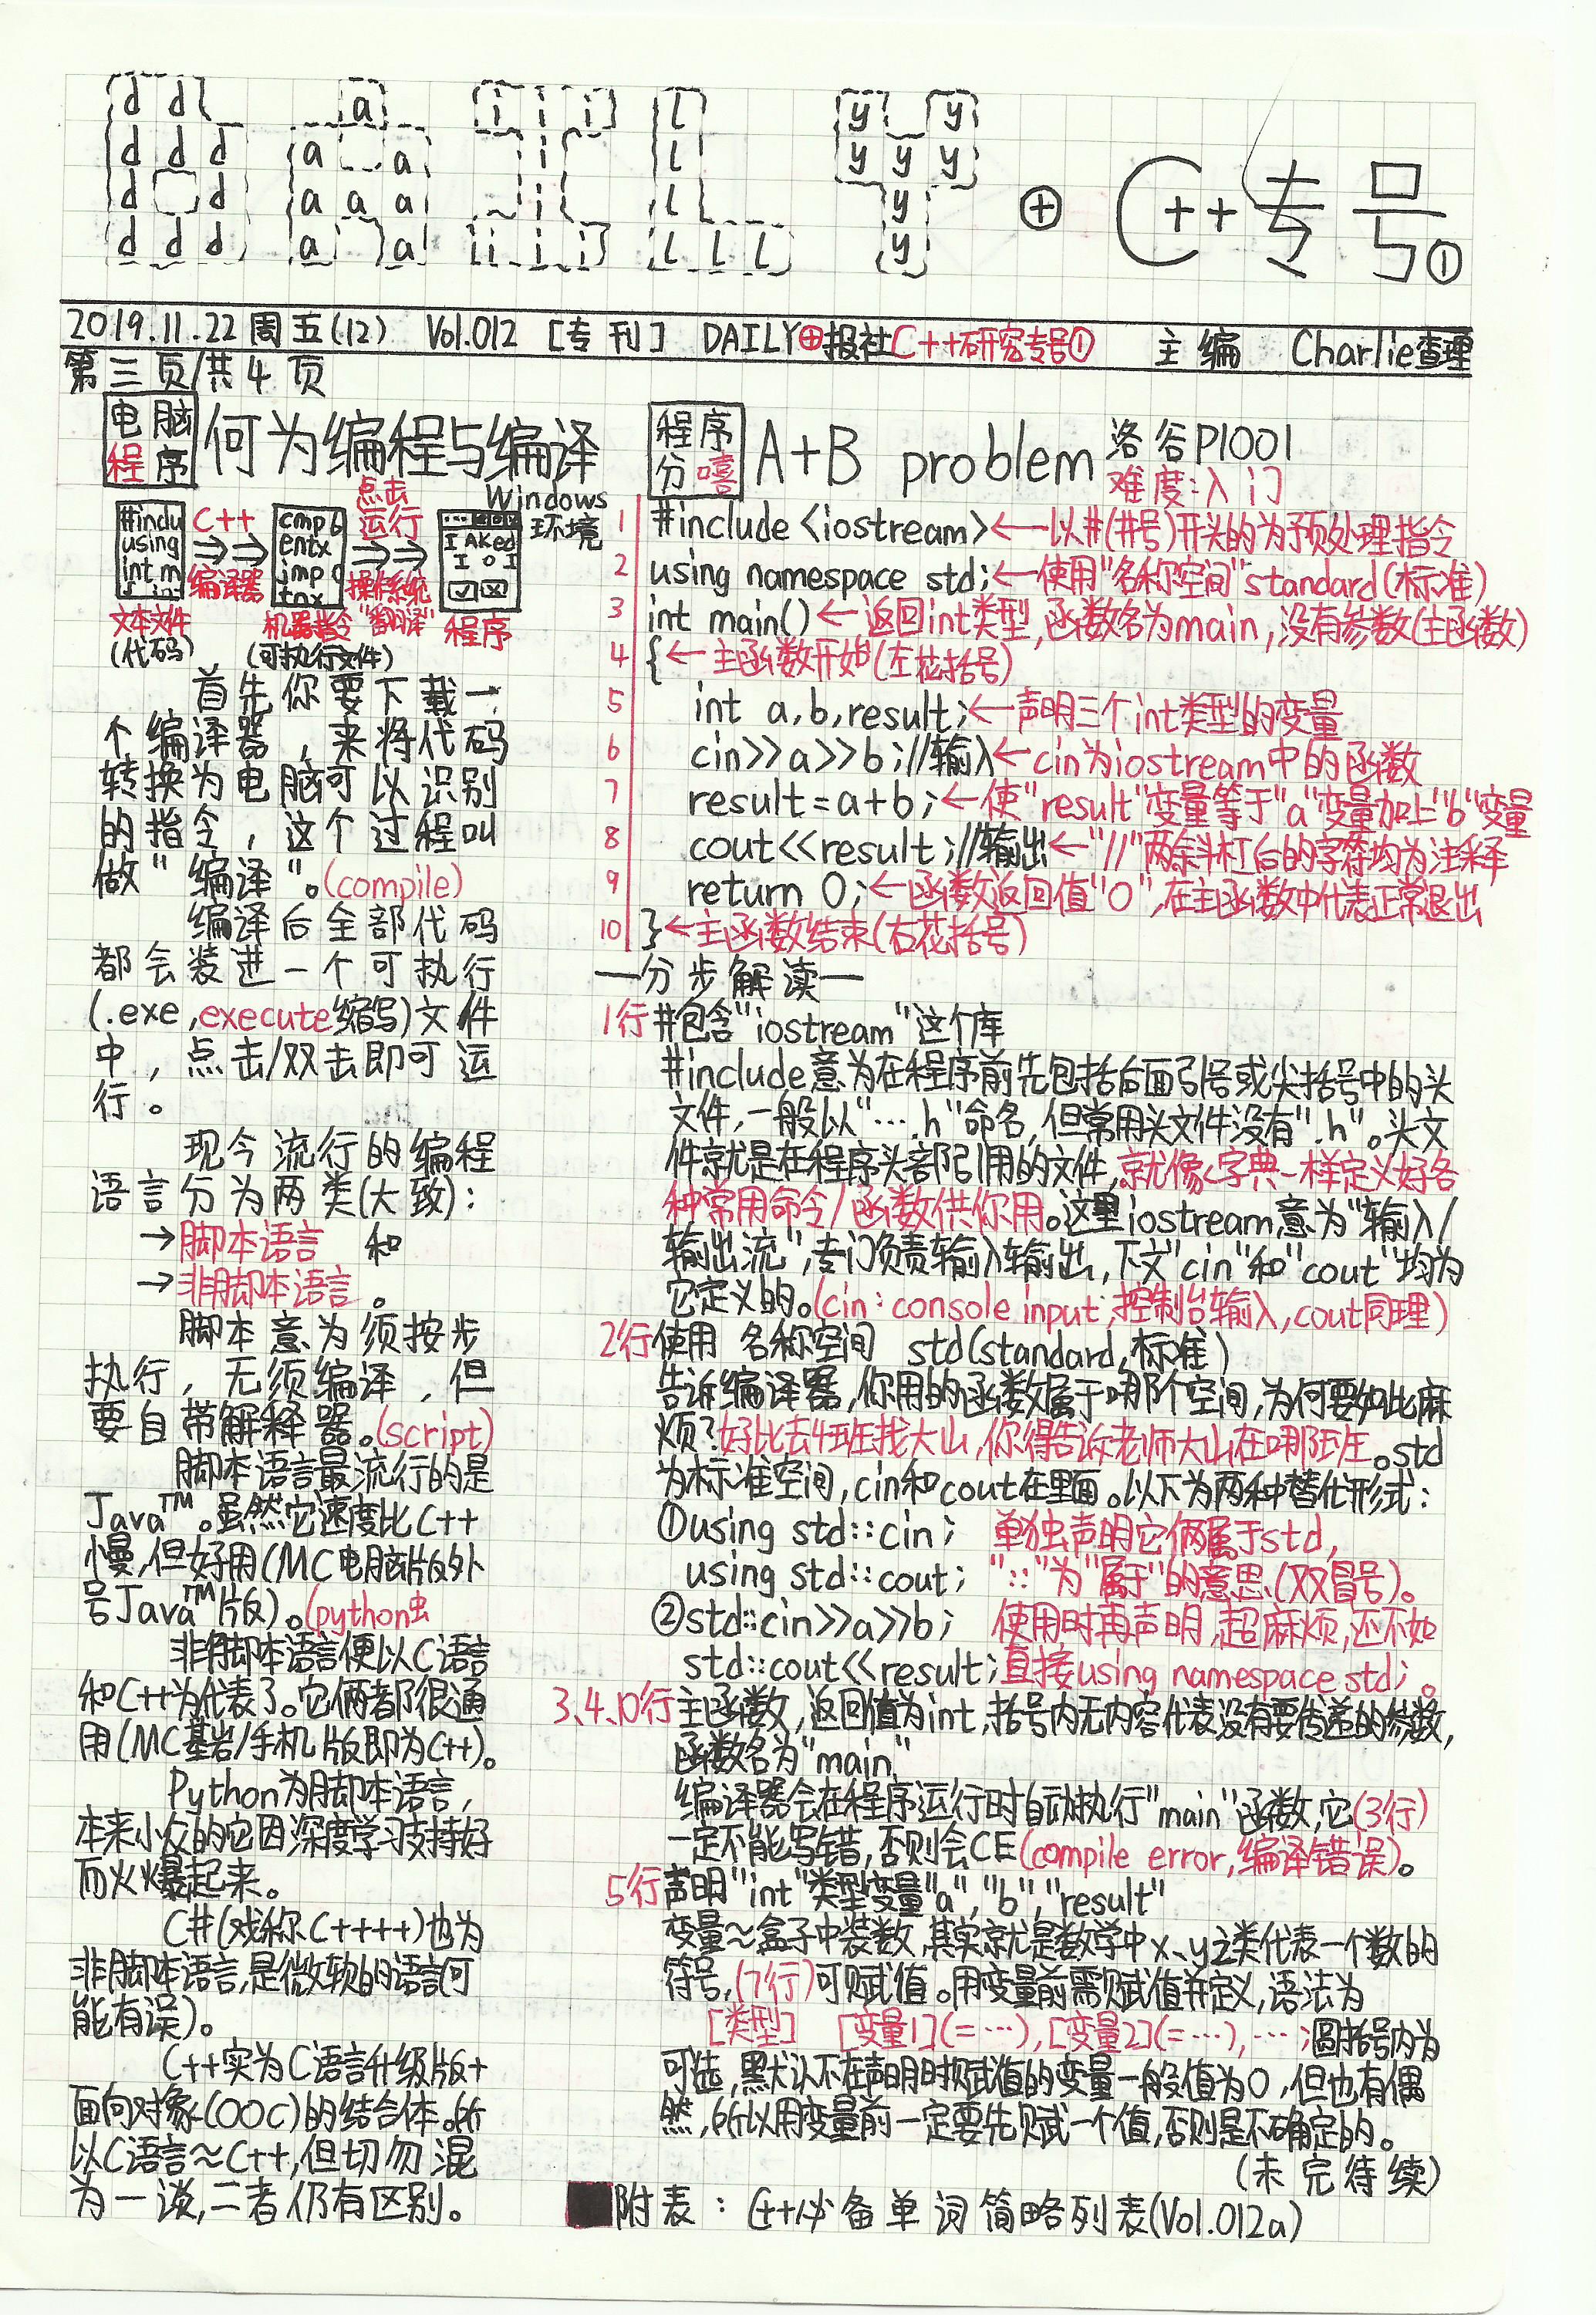 daily ⊕ C++专号①
2019.11.22 周五(12) Vol.012 [专刊] DAILY⊕报社C++研究专号① 主编 Charlie查理
第三页/共4页
电脑
程序
何为编程与编译
#inclu
using
int m
C++
编译器
cmp b
entx
jmp 0
tnx
点击
运行
操作系统
"翻译"
Windows
环境
I AKed
I O I
文本文件
(代码)
机器指令
(可执行文件)
程序
首先你要下载一
个编译器，来将代码
转换为电脑可以识别
的指令，这个过程叫
做"编译"。(compile)
编译后全部代码
都会装进一个可执行
(.exe,execute缩写)文件
中，点击/双击即可运
行。
现今流行的编程
语言分为两类(大致)：
→脚本语言 和
→非脚本语言。
脚本意为须按步
执行，无须编译，但
要自带解释器。(script)
脚本语言最流行的是
Java™。虽然它速度比C++
慢,但好用(MC电脑版外
号Java™版)。(python虫
非脚本语言便以C语言
和C++为代表了。它俩都很通
用(MC基岩/手机版即为C++)。
Python为脚本语言,
本来小众的它因深度学习支持好
而火爆起来。
C#(戏称C++++)也为
非脚本语言,是微软的语言(可
能有误)。
C++实为C语言升级版+
面向对象(OOC)的结合体。所
以C语言≈C++,但切勿混
为一谈,二者仍有区别。
程序
分嘻
A+B problem
洛谷P1001
难度:入门
1 #include <iostream>←以#(井号)开头的为预处理指令
2 using namespace std;←使用"名称空间"standard(标准)
3 int main()←返回int类型,函数名为main,没有参数(主函数)
4 {←主函数开始(左花括号)
5 int a,b,result;←声明三个int类型的变量
6 cin>>a>>b;//输入←cin为iostream中的函数
7 result=a+b;←使"result"变量等于"a"变量加上"b"变量
8 cout<<result;//输出←"//"两斜杠后的字符均为注释
9 return 0;←函数返回值"0",在主函数中代表正常退出
10 }←主函数结束(右花括号)
—分步解读—
1行#包含"iostream"这个库
#include意为在程序前先包括后面引号或尖括号中的头
文件,一般以"….h"命名,但常用头文件没有".h"。头文
件就是在程序头部引用的文件,就像字典一样定义好各
种常用命令/函数供你用。这里iostream意为"输入/
输出流",专门负责输入输出,下文"cin"和"cout"均为
它定义的。(cin:console input,控制台输入,cout同理)
2行使用 名称空间 std(standard,标准)
告诉编译器,你用的函数属于哪个空间,为何要如此麻
烦?好比去4班找大山,你得告诉老师大山在哪班。std
为标准空间,cin和cout在里面。以下为两种替代形式:
①using std::cin; 单独声明它俩属于std,
using std::cout; "::"为"属于"的意思(双冒号)。
②std::cin>>a>>b; 使用时再声明,超麻烦,还不如
std::cout<<result;直接using namespace std;。
3、4、10行主函数,返回值为int,括号内无内容代表没有要传递的参数,
函数名为"main"
编译器会在程序运行时自动执行"main"函数,它(3行)
一定不能写错,否则会CE(compile error,编译错误)。
5行声明"int"类型变量"a","b","result"
变量~盒子中装数,其实就是数学中x、y之类代表一个数的
符号,(7行)可赋值。用变量前需赋值并定义,语法为
[类型] [变量1](=…),[变量2](=…),…;圆括号内为
可选,默认不在声明时赋值的变量一般值为0,但也有偶
然,所以用变量前一定要先赋一个值,否则是不确定的。
(未完待续)
附表：C++必备单词简略列表(Vol.012a)